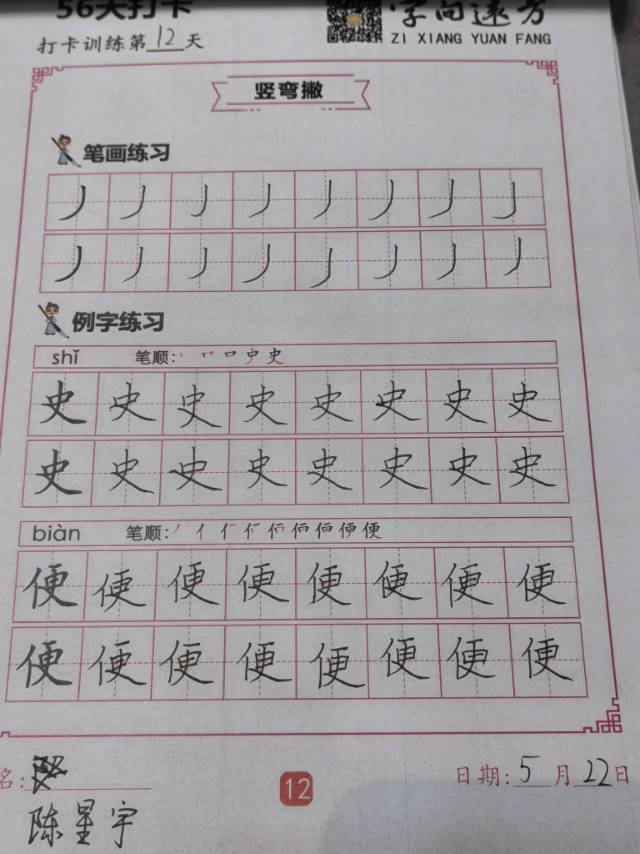 56天打卡
字向远方
打卡训练第12天
ZI XIANG YUAN FANG
竖弯撇
笔画练习
丿丿丿丿丿丿丿丿
丿丿丿丿丿丿丿丿
例字练习
shǐ 笔顺: 丨 𠃍 口 史 史
史史史史史史史史
史史史史史史史史
biàn 笔顺:
便便便便便便便便
便便便便便便便便
名:
12
日期: 5月22日
陈星宇